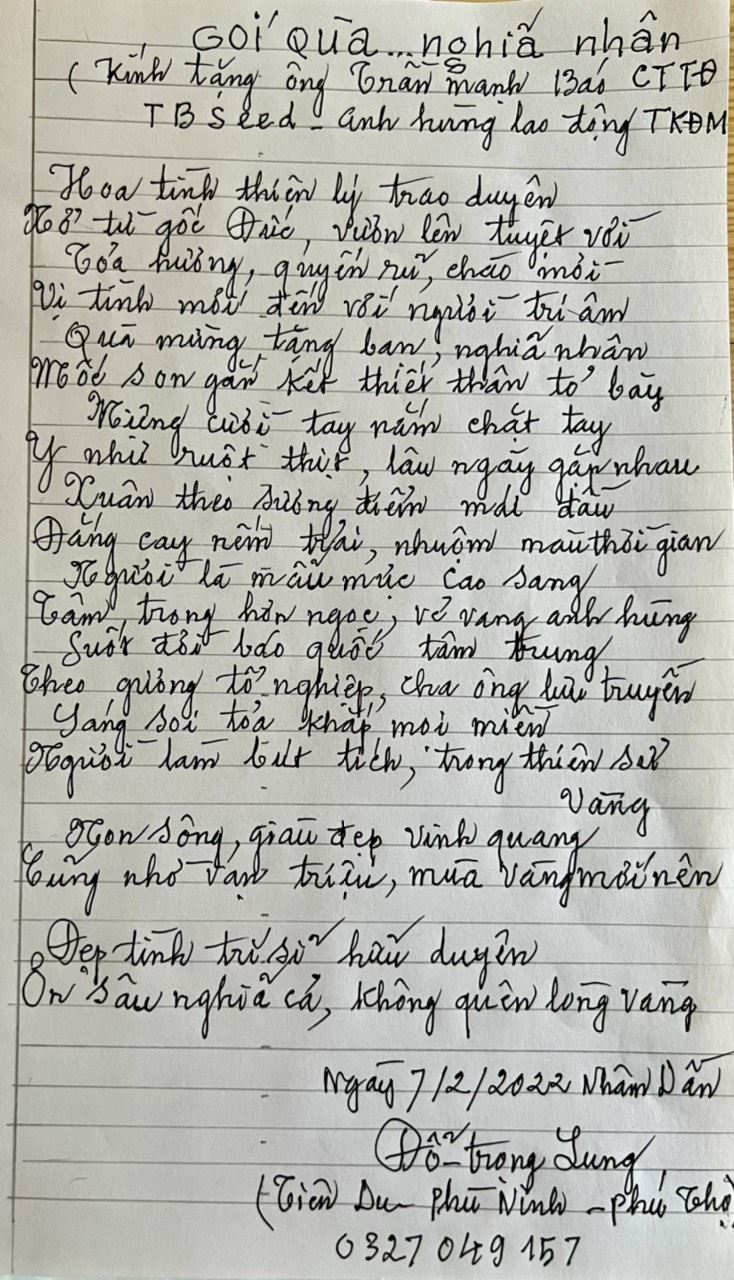 GÓI QUÀ... nghĩa nhân
(Kính tặng ông Trần Mạnh Báo CTTĐ
TBSeed - anh hùng lao động TKĐM
Hoa tình thiên lý trao duyên
Nở từ gốc Đức, vươn lên tuyệt vời
Tỏa hương, quyến rũ, chào mời
Vị tình mới đến với người tri âm
Quà mừng, tặng bạn, nghĩa nhân
Mốc son gắn kết thiết thân tỏ bày
Miệng cười tay nắm chặt tay
Y như ruột thịt, lâu ngày gặp nhau
Xuân theo sương điểm mái đầu
Đắng cay nếm trải, nhuộm màu thời gian
Người là mẫu mực cao sang
Tâm, trong hơn ngọc, vẻ vang anh hùng
Suốt đời báo quốc tâm trung
Theo gương tổ nghiệp, cha ông lưu truyền
Sáng soi tỏa khắp mọi miền
Người làm bút tích, trong thiên sử
Vàng
Non sông, giàu đẹp vinh quang
Cũng nhờ vạn triệu, mùa vàng mới nên
Đẹp tình trí sĩ hữu duyên
Ơn sâu nghĩa cả, không quên lòng vàng
Ngày 7/2/2022 Nhâm Dần
Đỗ Trọng Lung
(Tiên Du - Phù Ninh - Phú Thọ
0327 049 157